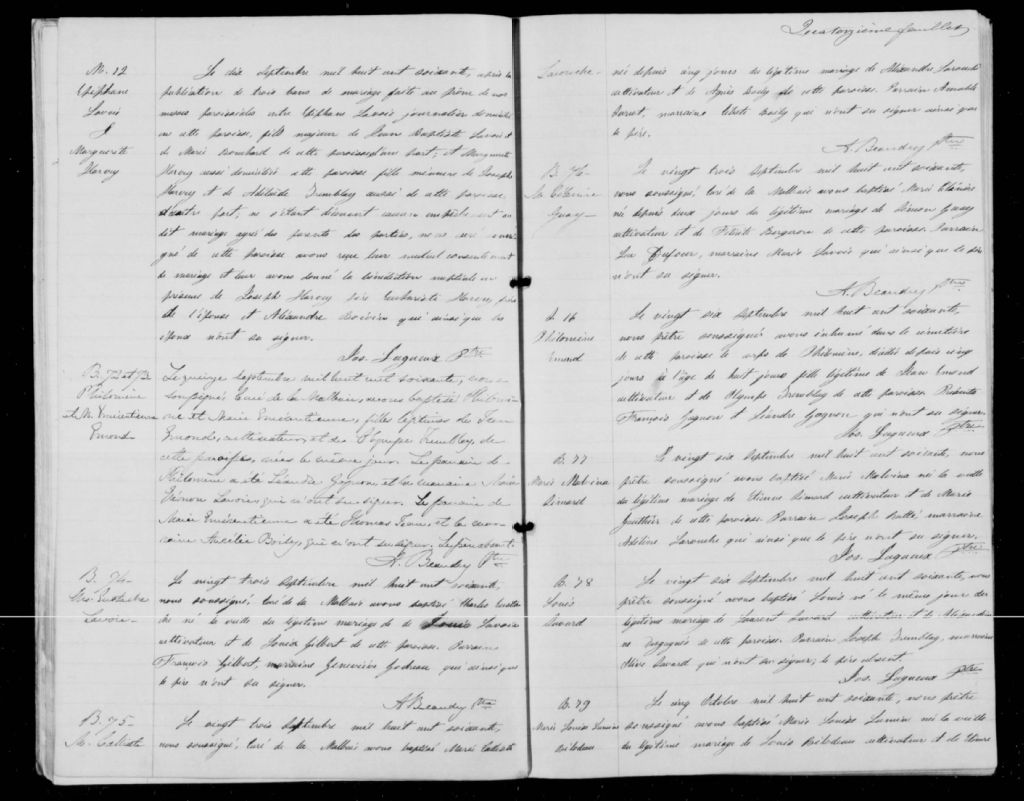 M. 12
Epiphane
Lavoie
&
Marguerite
Harvey
Le dix septembre mil huit cent soixante, après la
publication de trois bans de mariage faite au prône de nos
messes paroissiales entre Epiphane Lavoie journalier domicilié
en cette paroisse, fils majeur de Jean Baptiste Lavoie et
de Marie Bouchard de cette paroisse d'une part; et Marguerite
Harvey aussi domiciliée cette paroisse fille mineure de Joseph
Harvey et de Adelaide Tremblay aussi de cette paroisse
d'autre part, ne s'étant découvert aucun empêchement au
dit mariage agréé des parents des parties, nous curé soussi-
gné de cette paroisse avons reçu leur mutuel consentement
de mariage et leur avons donné la bénédiction nuptiale en
présence de Joseph Harvey père Harvey père
de l'épouse et Alexandre Boivin qui ainsi que les
époux n'ont su signer.
Jos. Lagueux Ptre
B. 72 et 73
Philomène
et M. Emérentienne
Emond
Le quinze septembre mil huit cent soixante, nous
soussigné Curé de la Malbaie, avons baptisé Philomè-
ne et Marie Emérentienne, filles légitimes de Jean
Emond, cultivateur, et de Olympe Tremblay, de
cette paroisse, nées le même jour. Le parrain de
Philomène a été Léandre Gagnon et la marraine Marie
Lavoie, qui n'ont su signer. Le parrain de
Marie Emérentienne a été Thomas et la mar-
raine Boily, qui n'ont su signer. Le père absent.
A. Beaudry Ptre
B. 74
Chs. Eustache
Lavoie
Le vingt trois septembre mil huit cent soixante,
nous soussigné, Curé de la Malbaie avons baptisé Charles Eusta-
che né la veille du légitime mariage de de Louis Lavoie
cultivateur et de Louisa Gilbert de cette paroisse. Parrain
François Gilbert, marraine Geneviève Godreau qui ainsi que
le père n'ont su signer.
A. Beaudry Ptre
B. 75
M. Calixte
Le vingt trois septembre mil huit cent soixante,
nous soussigné, Curé de la Malbaie avons baptisé Marie Calixte
Quatorzième feuillet
Larouche
née depuis cinq jours du légitime mariage de Alexandre Larouche
cultivateur et de Agnès Boily de cette paroisse. Parrain Aimable
marraine Boily qui n'ont su signer ainsi que
le père.
A. Beaudry Ptre
B. 76
Guay
Le vingt trois septembre mil huit cent soixante,
nous soussigné, Curé de la Malbaie avons baptisé Marie
née depuis deux jours du légitime mariage de Simon Guay
cultivateur et de Bergeron de cette paroisse. Parrain
Dufour, marraine Marie Lavoie qui ainsi que le père
n'ont su signer.
A. Beaudry Ptre
S. 16
Philomène
Emond
Le vingt six septembre mil huit cent soixante,
nous prêtre soussigné avons inhumé dans le cimetière
de cette paroisse le corps de Philomène, décédée depuis cinq
jours à l'âge de huit jours fille légitime de Jean Emond
cultivateur et de Olympe Tremblay de cette paroisse. Présents
François Gagnon et Léandre Gagnon qui n'ont su signer.
Jos. Lagueux Ptre
B. 77
Marie Malvina
Simard
Le vingt six septembre mil huit cent soixante, nous
prêtre soussigné avons baptisé Marie Malvina née la veille
du légitime mariage de Etienne Simard cultivateur et de Marie
Gauthier de cette paroisse. Parrain Joseph marraine
Adeline Larouche qui ainsi que le père n'ont su signer.
Jos. Lagueux Ptre
B. 78
Louis
Savard
Le vingt six septembre mil huit cent soixante, nous
prêtre soussigné avons baptisé Louis né le même jour du
légitime mariage de Laurent Savard cultivateur et de
de cette paroisse. Parrain Joseph Tremblay, marraine
Savard qui n'ont su signer, le père absent.
Jos. Lagueux Ptre
B. 79
Marie Louise
Bilodeau
Le cinq Octobre mil huit cent soixante, nous prêtre
soussigné avons baptisé Marie Louise née la veille
du légitime mariage de Louis Bilodeau cultivateur et de